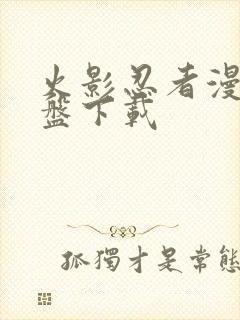 火影忍者漫
盤下載
孤獨才是常態